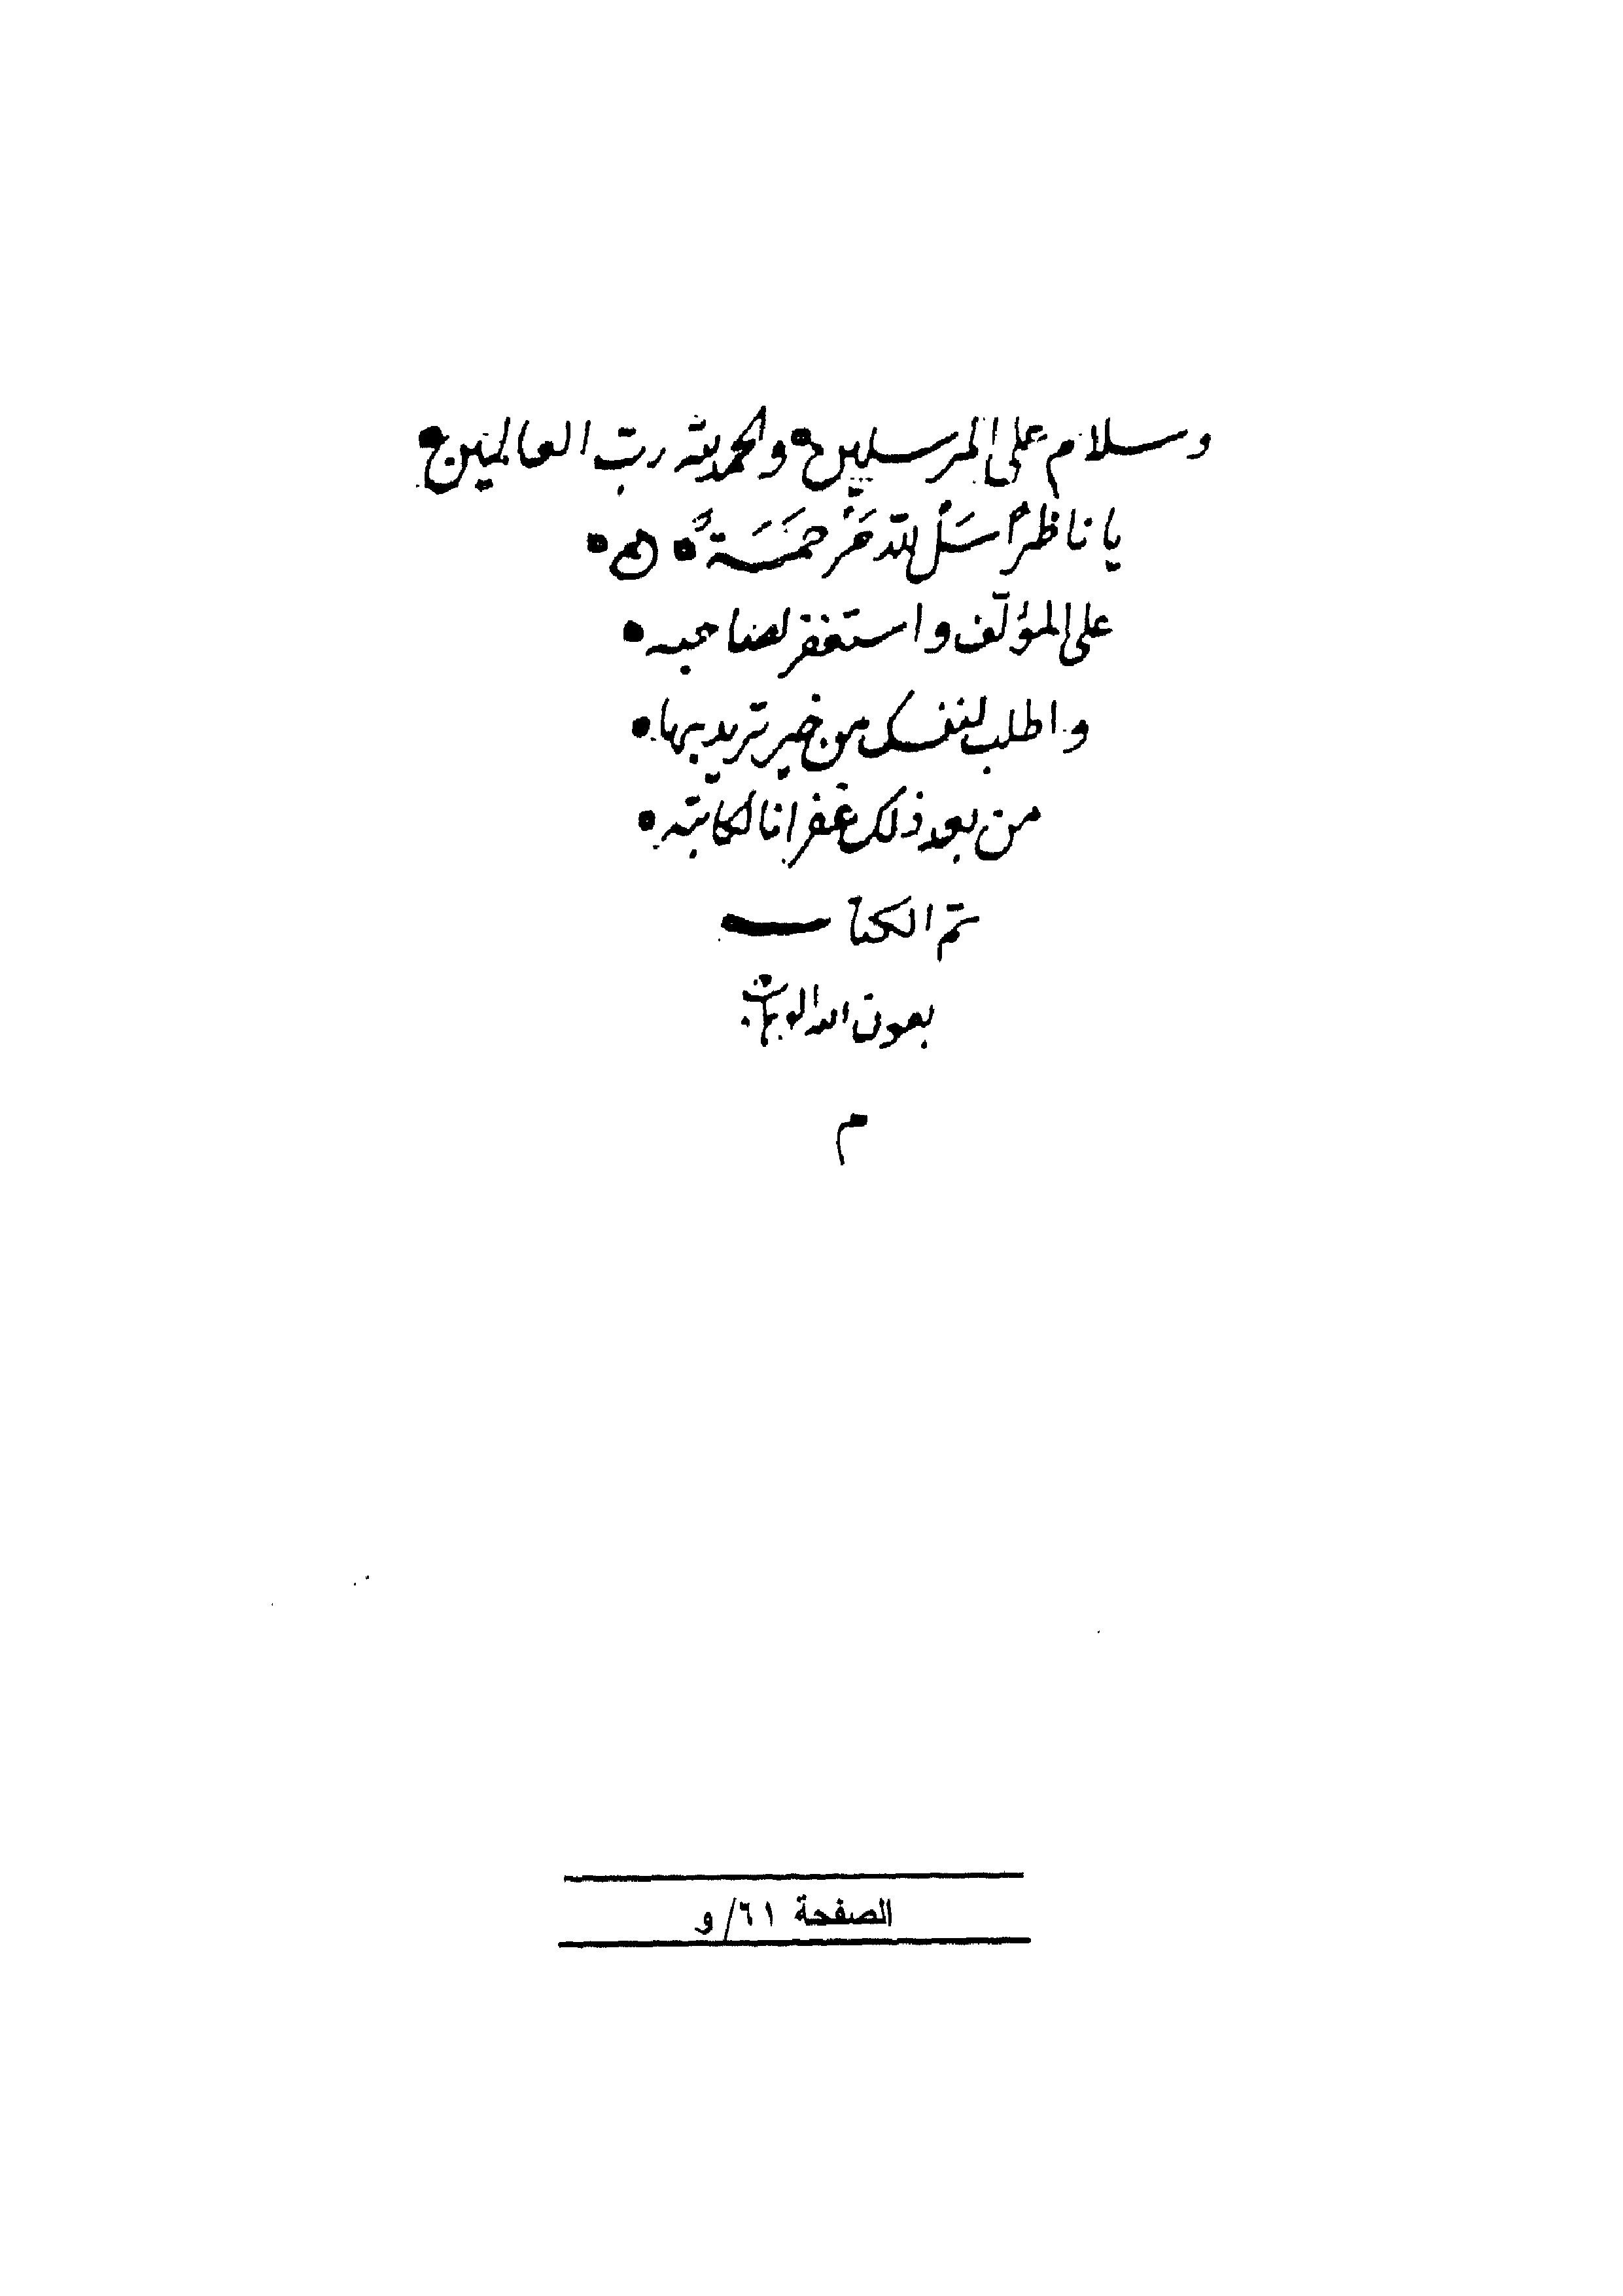 وسلام على المرسلين والحمد لله رب العالمين
يا ناظرًا سَلْ لله مَرْحَمَةً
على المؤلّف واستغفر لصاحبه
واطلب لنفسك من خير تريد بها
من بعد ذلك غفرانا لكاتبه
تمّ الكتاب
بعون الله الوهاب
م
الصفحة ٦١/و